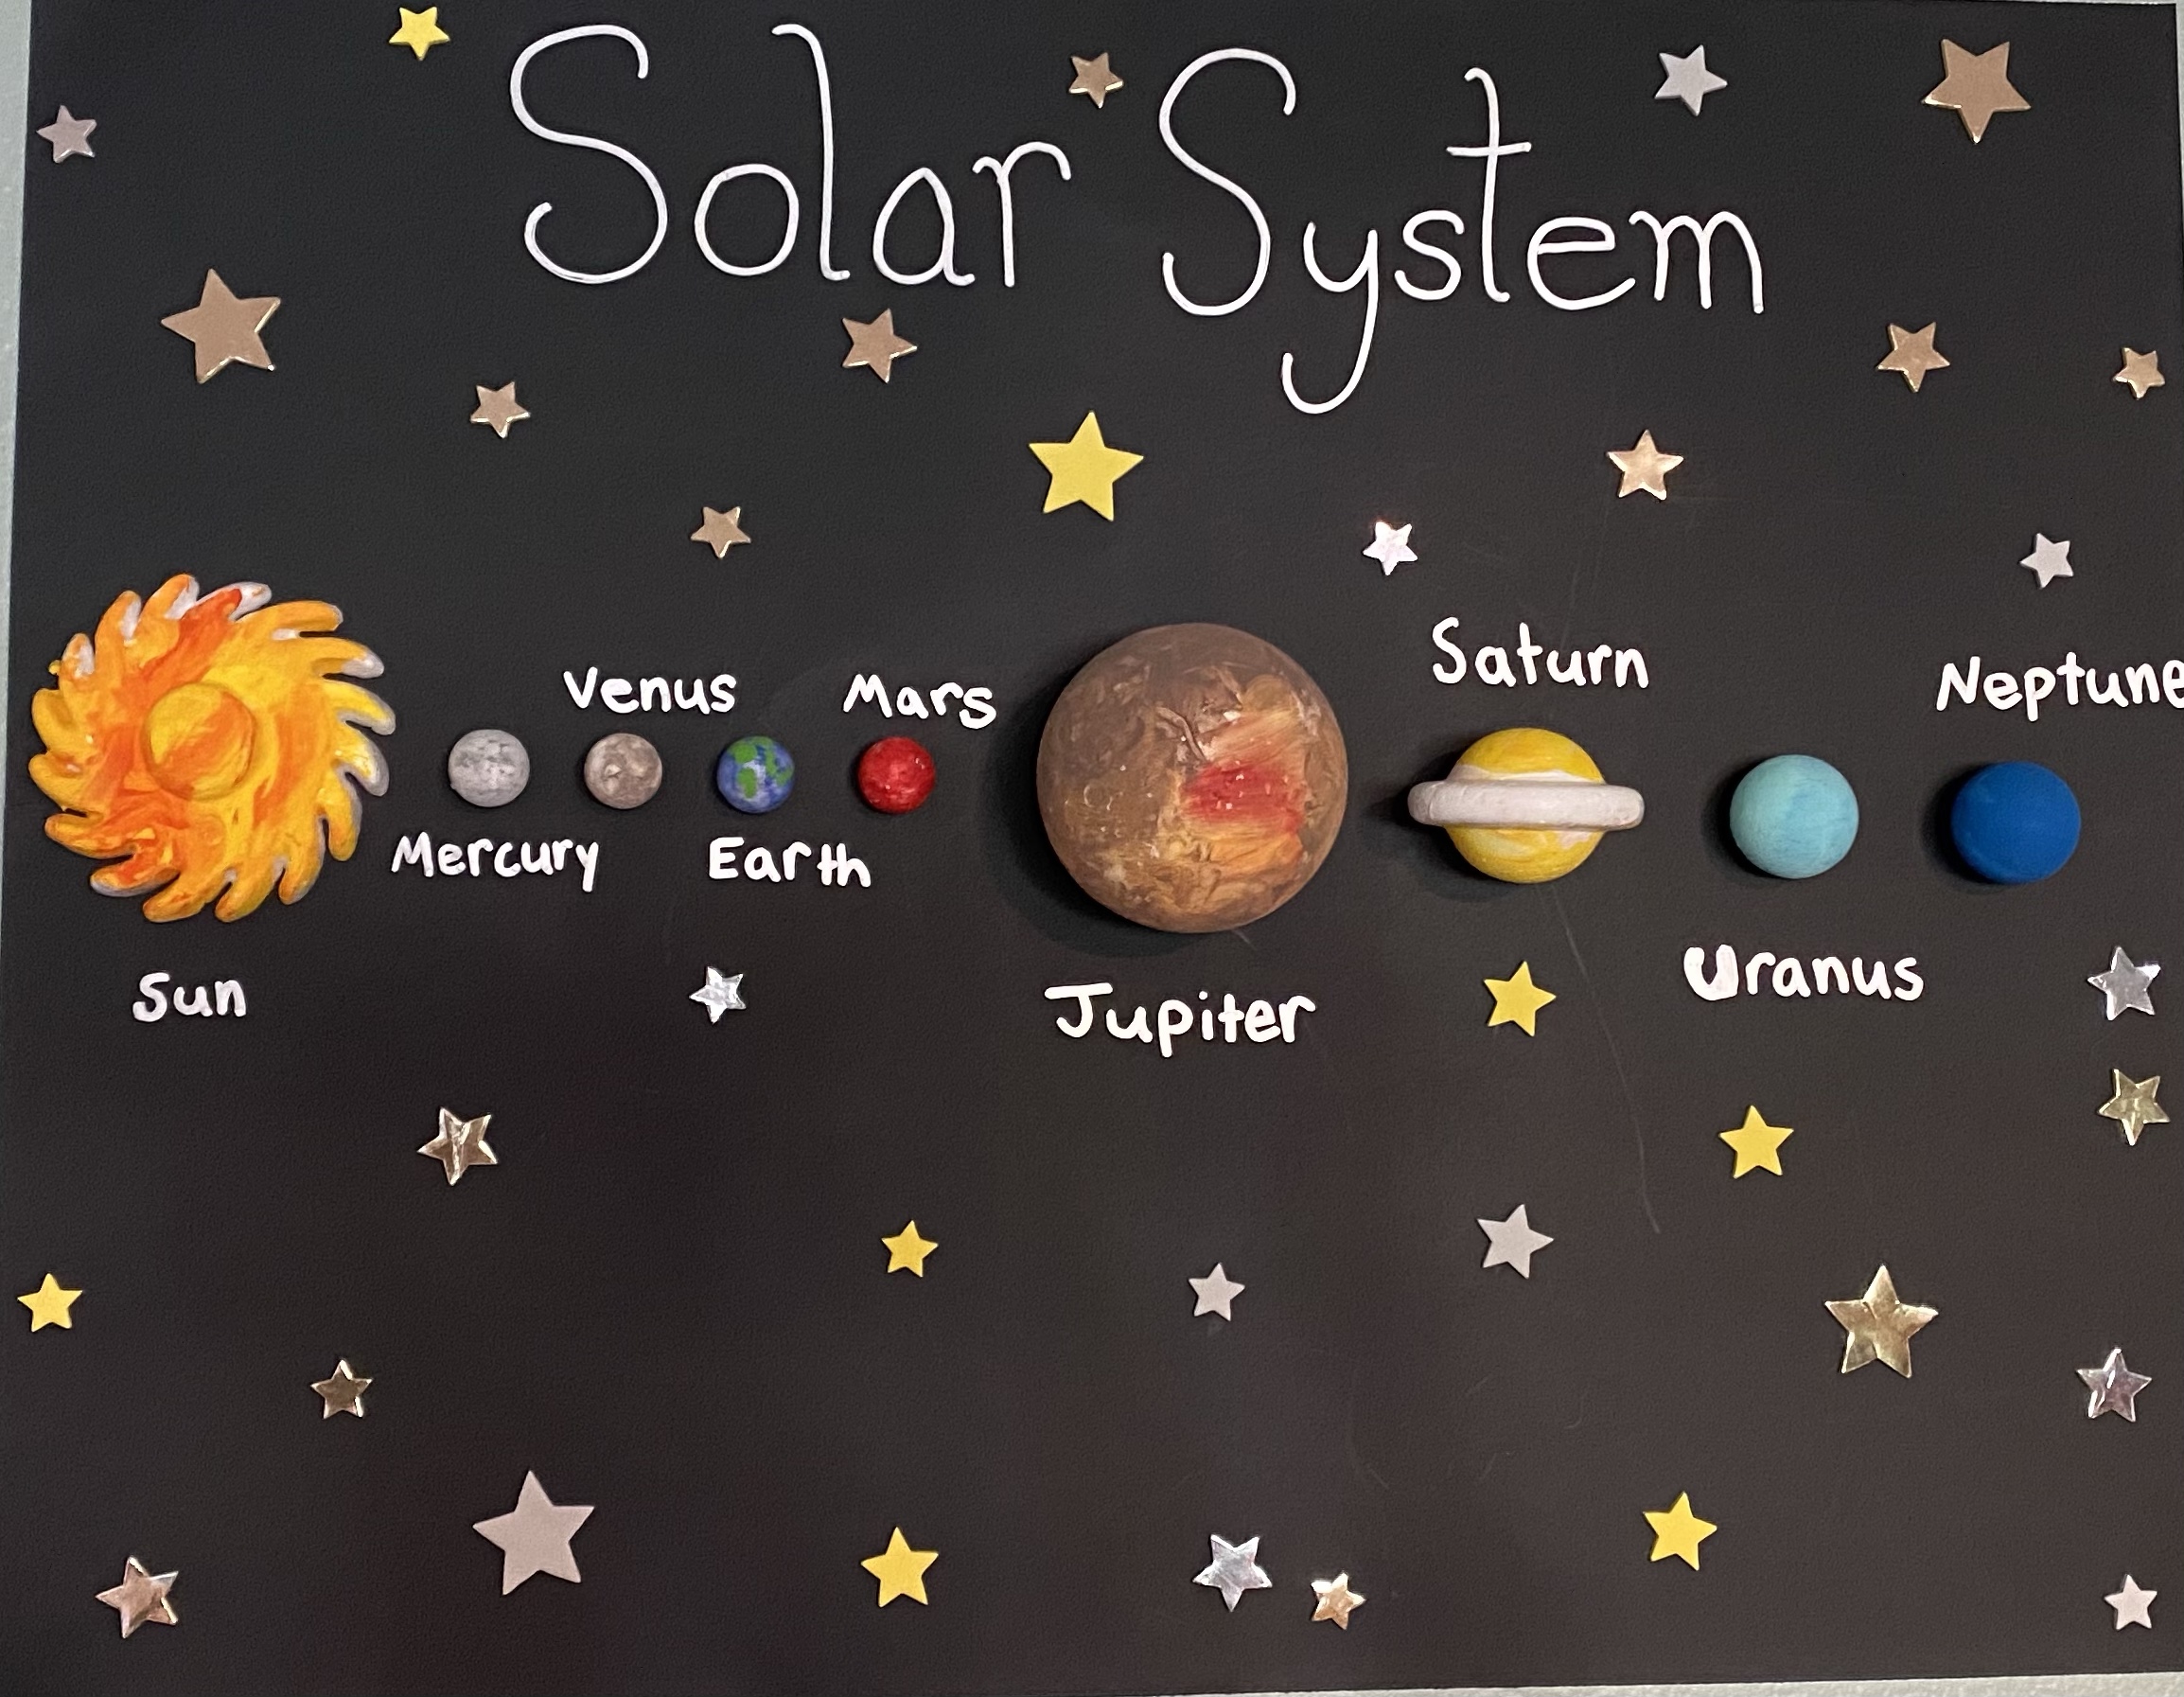 Solar System
Saturn
Venus
Mars
Neptune
Mercury
Earth
Sun
Jupiter
Uranus